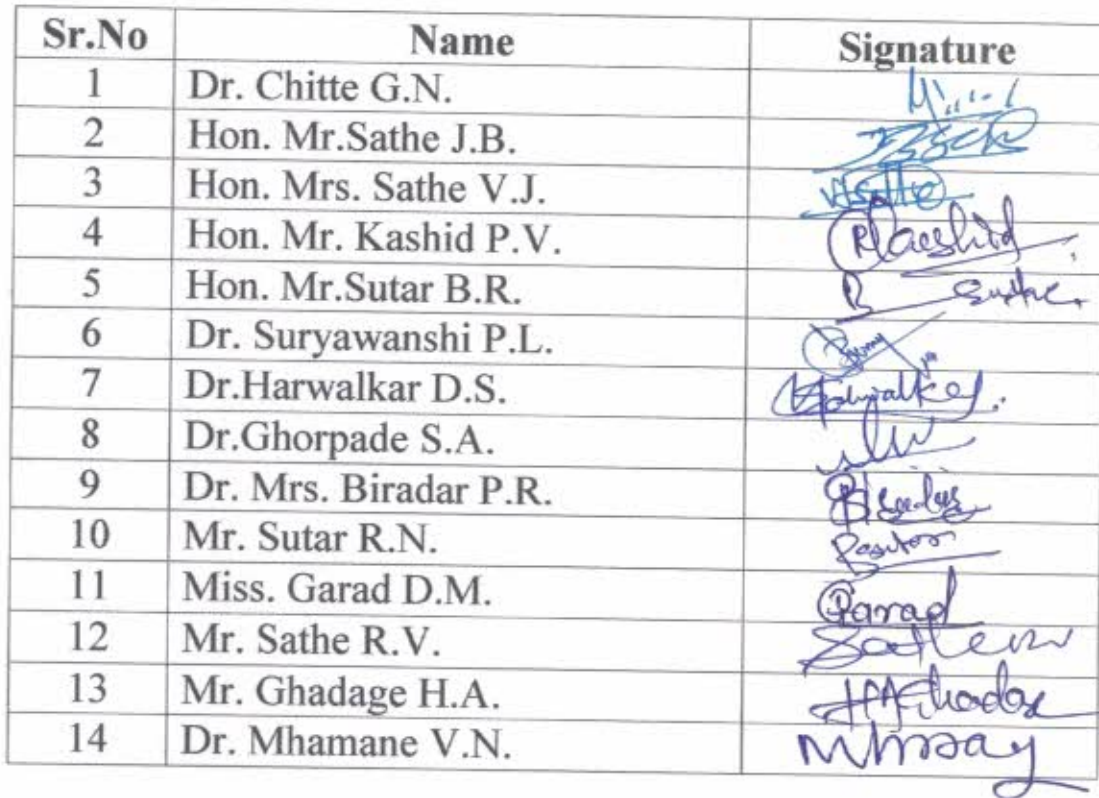 Sr.No Name Signature
1 Dr. Chitte G.N.
2 Hon. Mr.Sathe J.B.
3 Hon. Mrs. Sathe V.J.
4 Hon. Mr. Kashid P.V.
5 Hon. Mr.Sutar B.R.
6 Dr. Suryawanshi P.L.
7 Dr.Harwalkar D.S.
8 Dr.Ghorpade S.A.
9 Dr. Mrs. Biradar P.R.
10 Mr. Sutar R.N.
11 Miss. Garad D.M.
12 Mr. Sathe R.V.
13 Mr. Ghadage H.A.
14 Dr. Mhamane V.N.